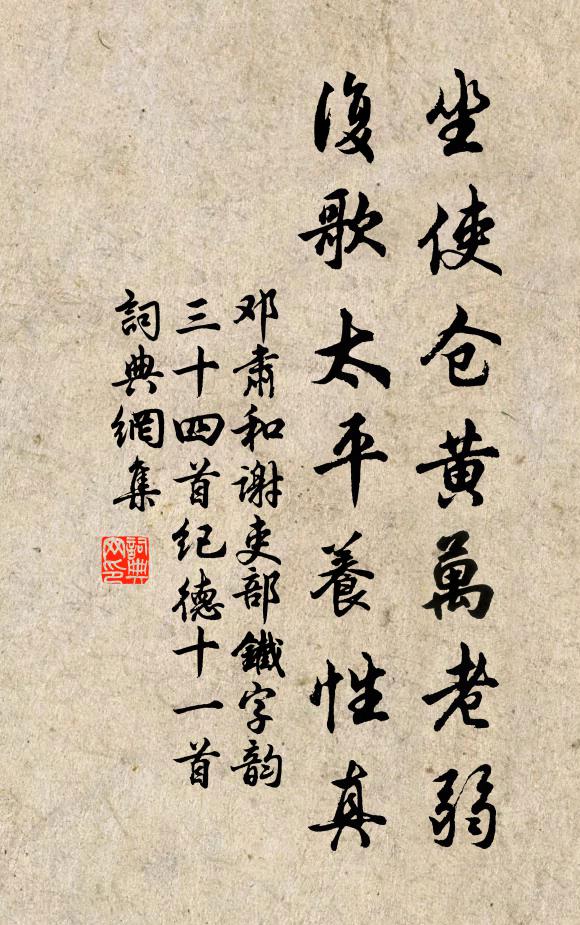 坐使仓黄萬老弱
復歌太平養性真
邓肅和谢吏部鐵字韵
三十四首纪德十一首
詞典網集
詞典
网印